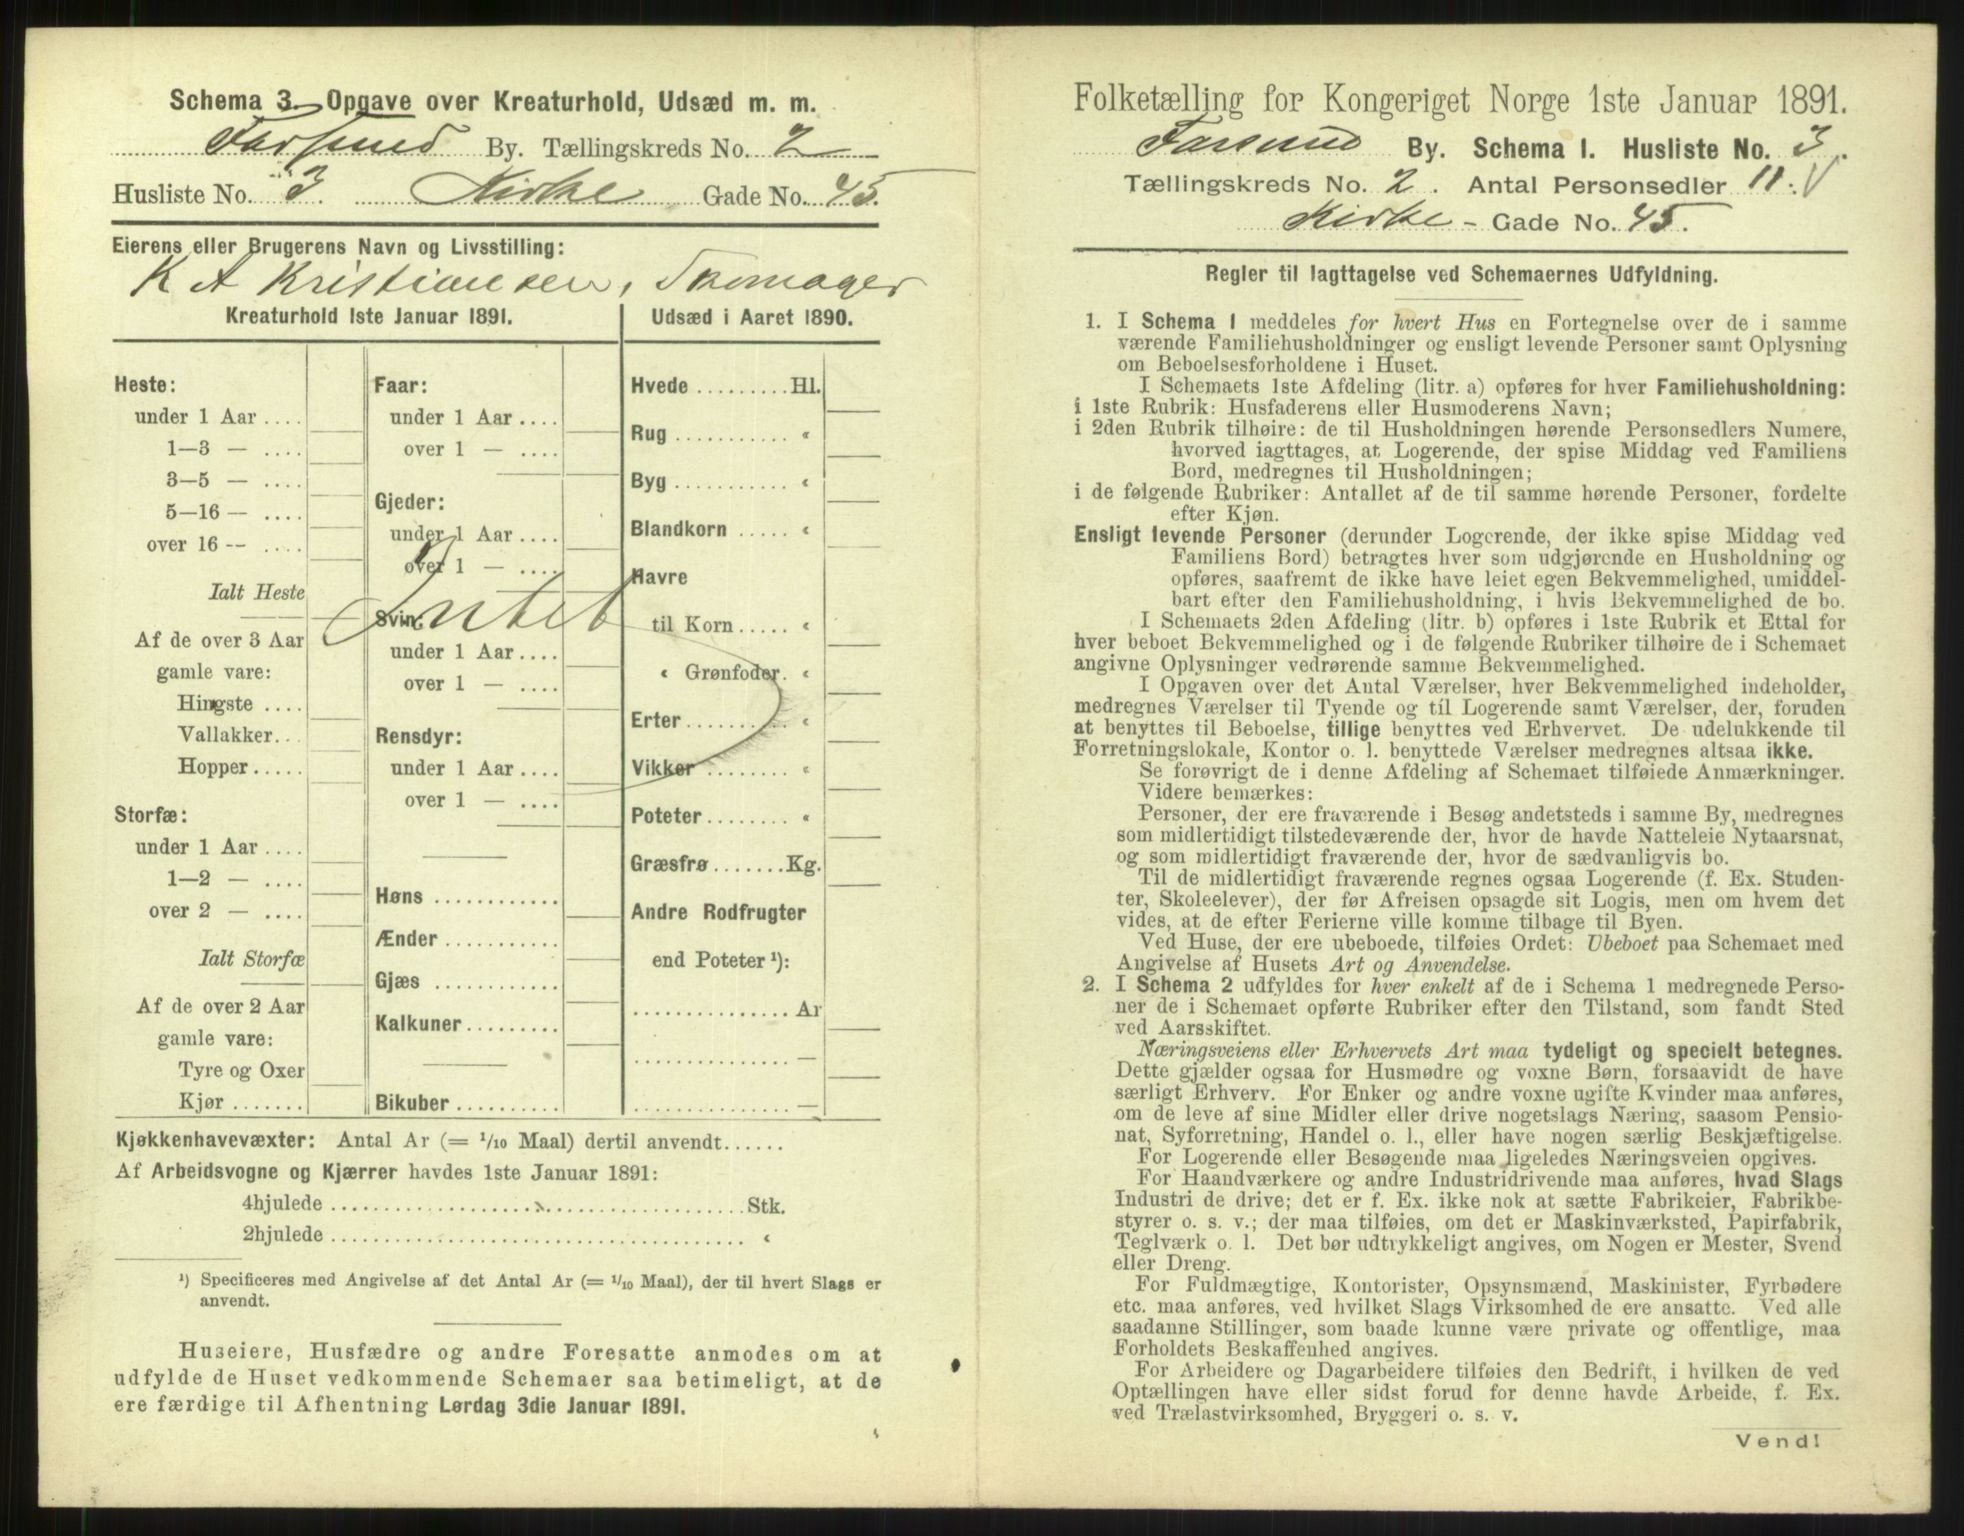 Schema 3. Opgave over Kreaturhold, Udsæd m. m.
Farsund By. Tællingskreds No. 2
Husliste No. 3 Kirke Gade No. 45.
Eierens eller Brugerens Navn og Livsstilling:
K A Kristiansen, Skomager
Kreaturhold 1ste Januar 1891.
Heste:
under 1 Aar ....
1—3 — ....
3—5 — ....
5—16 — ....
over 16 — ....
Ialt Heste
Af de over 3 Aar
gamle vare:
Hingste ....
Vallakker...
Hopper.....
Storfæ:
under 1 Aar ....
1—2 — ....
over 2 — ....
Ialt Storfæ
Af de over 2 Aar
gamle vare:
Tyre og Oxer
Kjør .......
Faar:
under 1 Aar ....
over 1 — ....
Gjeder:
under 1 Aar ....
over 1 — ....
Intet
Svin:
under 1 Aar ....
over 1 — ....
Rensdyr:
under 1 Aar ....
over 1 — ....
Høns ............
Ænder ...........
Gjæs ............
Kalkuner.........
Bikuber..........
Udsæd i Aaret 1890.
Hvede .........Hl.
Rug ........... «
Byg ........... «
Blandkorn ..... «
Havre
til Korn..... «
« Grønfoder. «
Erter.......... «
Vikker ........ «
Poteter........ «
Græsfrø .......Kg.
Andre Rodfrugter
end Poteter ¹):
............... Ar
............... —
............... —
Kjøkkenhavevæxter: Antal Ar (= 1/10 Maal) dertil anvendt......
Af Arbeidsvogne og Kjærrer havdes 1ste Januar 1891:
4hjulede ........................................Stk.
2hjulede ........................................ «
¹) Specificeres med Angivelse af det Antal Ar (= 1/10 Maal), der til hvert Slags er
anvendt.
Huseiere, Husfædre og andre Foresatte anmodes om at
udfylde de Huset vedkommende Schemaer saa betimeligt, at de
ere færdige til Afhentning Lørdag 3die Januar 1891.
Folketælling for Kongeriget Norge 1ste Januar 1891.
Farsund By. Schema I. Husliste No. 3.
Tællingskreds No. 2. Antal Personsedler 11.
Kirke - Gade No. 45.
Regler til Iagttagelse ved Schemaernes Udfyldning.
1. I Schema 1 meddeles for hvert Hus en Fortegnelse over de i samme
værende Familiehusholdninger og ensligt levende Personer samt Oplysning
om Beboelsesforholdene i Huset.
I Schemaets 1ste Afdeling (litr. a) opføres for hver Familiehusholdning:
i 1ste Rubrik: Husfaderens eller Husmoderens Navn;
i 2den Rubrik tilhøire: de til Husholdningen hørende Personsedlers Numere,
hvorved iagttages, at Logerende, der spise Middag ved Familiens
Bord, medregnes til Husholdningen;
i de følgende Rubriker: Antallet af de til samme hørende Personer, fordelte
efter Kjøn.
Ensligt levende Personer (derunder Logerende, der ikke spise Middag ved
Familiens Bord) betragtes hver som udgjørende en Husholdning og
opføres, saafremt de ikke have leiet egen Bekvemmelighed, umiddel-
bart efter den Familiehusholdning, i hvis Bekvemmelighed de bo.
I Schemaets 2den Afdeling (litr. b) opføres i 1ste Rubrik et Ettal for
hver beboet Bekvemmelighed og i de følgende Rubriker tilhøire de i Schemaet
angivne Oplysninger vedrørende samme Bekvemmelighed.
I Opgaven over det Antal Værelser, hver Bekvemmelighed indeholder,
medregnes Værelser til Tyende og til Logerende samt Værelser, der, foruden
at benyttes til Beboelse, tillige benyttes ved Erhvervet. De udelukkende til
Forretningslokale, Kontor o. l. benyttede Værelser medregnes altsaa ikke.
Se forøvrigt de i denne Afdeling af Schemaet tilføiede Anmærkninger.
Videre bemærkes:
Personer, der ere fraværende i Besøg andetsteds i samme By, medregnes
som midlertidigt tilstedeværende der, hvor de havde Natteleie Nytaarsnat,
og som midlertidigt fraværende der, hvor de sædvanligvis bo.
Til de midlertidigt fraværende regnes ogsaa Logerende (f. Ex. Studen-
ter, Skoleelever), der før Afreisen opsagde sit Logis, men om hvem det
vides, at de efter Ferierne ville komme tilbage til Byen.
Ved Huse, der ere ubeboede, tilføies Ordet: Ubeboet paa Schemaet med
Angivelse af Husets Art og Anvendelse.
2. I Schema 2 udfyldes for hver enkelt af de i Schema 1 medregnede Perso-
ner de i Schemaet opførte Rubriker efter den Tilstand, som fandt Sted
ved Aarsskiftet.
Næringsveiens eller Erhvervets Art maa tydeligt og specielt betegnes.
Dette gjælder ogsaa for Husmødre og voxne Børn, forsaavidt de have
særligt Erhverv. For Enker og andre voxne ugifte Kvinder maa anføres,
om de leve af sine Midler eller drive nogetslags Næring, saasom Pensio-
nat, Syforretning, Handel o. l., eller have nogen særlig Beskjæftigelse.
For Logerende eller Besøgende maa ligeledes Næringsveien opgives.
For Haandværkere og andre Industridrivende maa anføres, hvad Slags
Industri de drive; det er f. Ex. ikke nok at sætte Fabrikeier, Fabrikbe-
styrer o. s. v.; der maa tilføies, om det er Maskinværksted, Papirfabrik,
Teglværk o. l. Det bør udtrykkeligt angives, om Nogen er Mester, Svend
eller Dreng.
For Fuldmægtige, Kontorister, Opsynsmænd, Maskinister, Fyrbødere
etc. maa anføres, ved hvilket Slags Virksomhed de ere ansatte. Ved alle
saadanne Stillinger, som baade kunne være private og offentlige, maa
Forholdets Beskaffenhed angives.
For Arbeidere og Dagarbeidere tilføies den Bedrift, i hvilken de ved
Optællingen have eller sidst forud for denne havde Arbeide, f. Ex.
ved Trælastvirksomhed, Bryggeri o. s. v.
Vend!